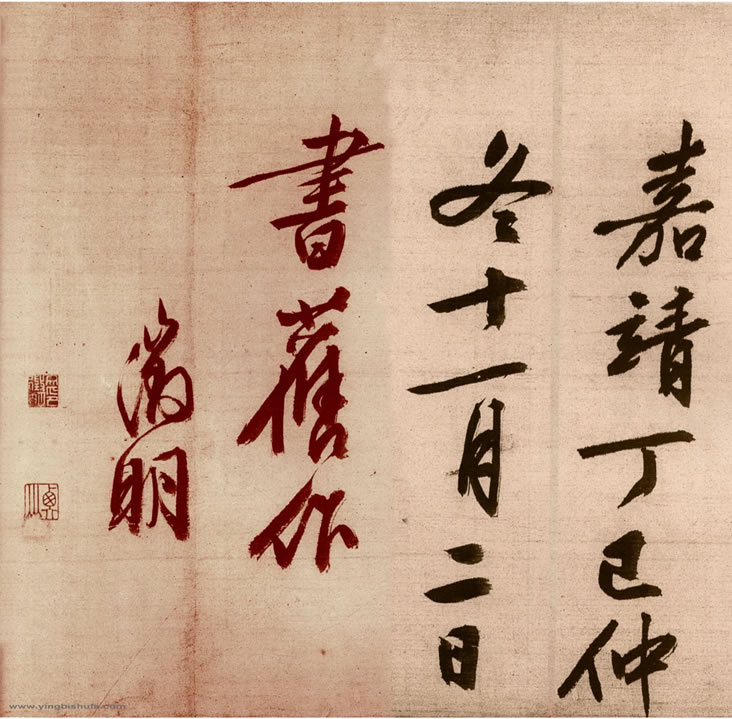 嘉靖丁巳仲
冬十一月二日
書舊作
徵明
www.yingbishufa.com